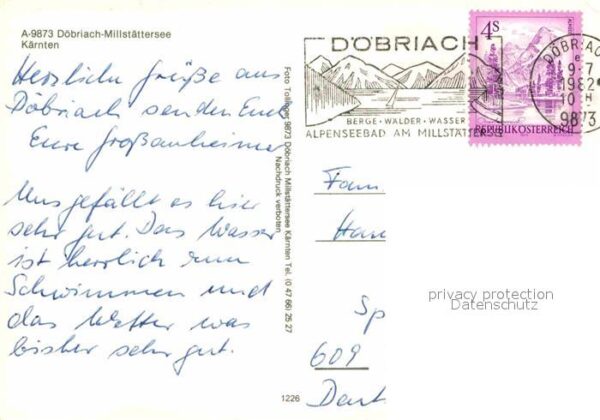 A-9873 Döbriach-Millstättersee
Kärnten
Herzliche Grüße aus
Döbriach senden Euch
Eure Großauheimer
Uns gefällt es hier
sehr gut. Das Wasser
ist herrlich zum
Schwimmen und
das Wetter war
bisher sehr gut.
1226
Nachdruck verboten
9873 Döbriach Millstättersee Kärnten Tel. (0 47 66) 25 27
DÖBRIACH
BERGE · WÄLDER · WASSER
ALPENSEEBAD AM MILLSTÄTTERSEE
4S
REPUBLIK ÖSTERREICH
DÖBRIACH
9-7
1982
10 H
9873
Fam
Han
Sp
609
Dart
privacy protection
Datenschutz